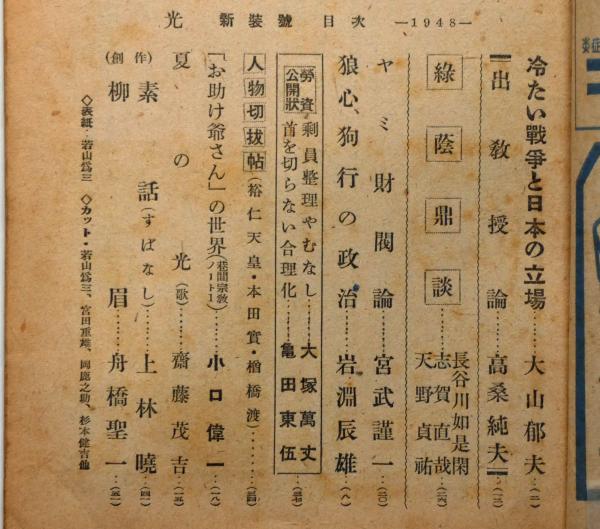 光 新裝號 目次 ―1948―
冷たい戰爭と日本の立場……大山郁夫…(二)
出教授論……高桑純夫…(一三)
綠蔭鼎談 長谷川如是閑 志賀直哉 天野貞祐…(二六)
ヤミ財閥論……宮武謹一…(二〇)
狼心、狗行の政治……岩淵辰雄…(八)
勞資公開狀
剩員整理やむなし……大塚萬丈
首を切らない合理化……亀田東伍…(三七)
人物切拔帖(裕仁天皇・本田實・楢橋渡)……(三四)
「お助け爺さん」の世界(巷間宗敎ノート1)……小口偉一…(一八)
夏の光(歌)……齋藤茂吉…(一五)
(創作)
素話(すばなし)……上林曉…(四一)
柳眉……舟橋聖一…(五一)
◇表紙・若山爲三 ◇カット・若山爲三、宮田重雄、岡鹿之助、杉本健吉他